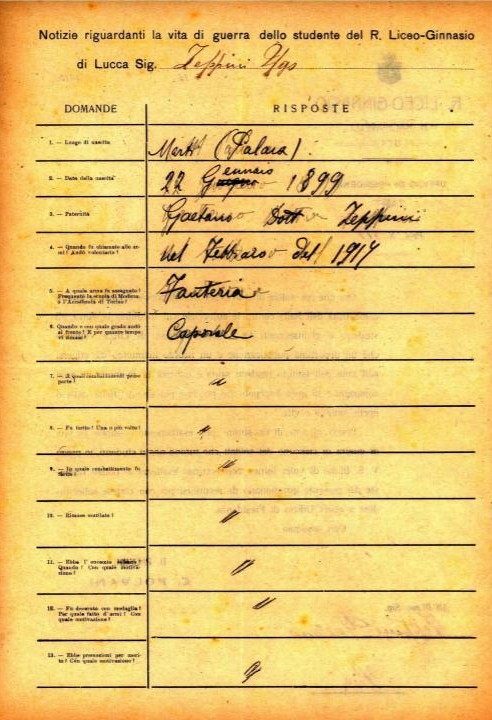 Notizie riguardanti la vita di guerra dello studente del R. Liceo-Ginnasio
di Lucca Sig. Zeppini Ugo
DOMANDE
RISPOSTE
1. — Luogo di nascita
Marti (Palaia).
2. — Data della nascita
22 Gennaio 1899
3. — Paternità
Gaetano Dott Zeppini
4. — Quando fu chiamato alle armi? Andò volontario?
nel Febbraio del 1917
5. — A quale arma fu assegnato?
Frequentò la scuola di Modena
o l'Accademia di Torino?
Fanteria
6. — Quando e con quale grado andò
al fronte? E per quanto tempo
vi rimase?
Caporale
7. — A quali combattimenti prese
parte?
8. — Fu ferito? Una o più volte?
9. — In quale combattimento fu
ferito?
10. — Rimase mutilato?
11. — Ebbe l'encomio
Quando? Con quale motivazione?
12. — Fu decorato con medaglia?
Per quale fatto d'armi? Con
quale motivazione?
13. — Ebbe promozioni per merito? Con quale motivazione?